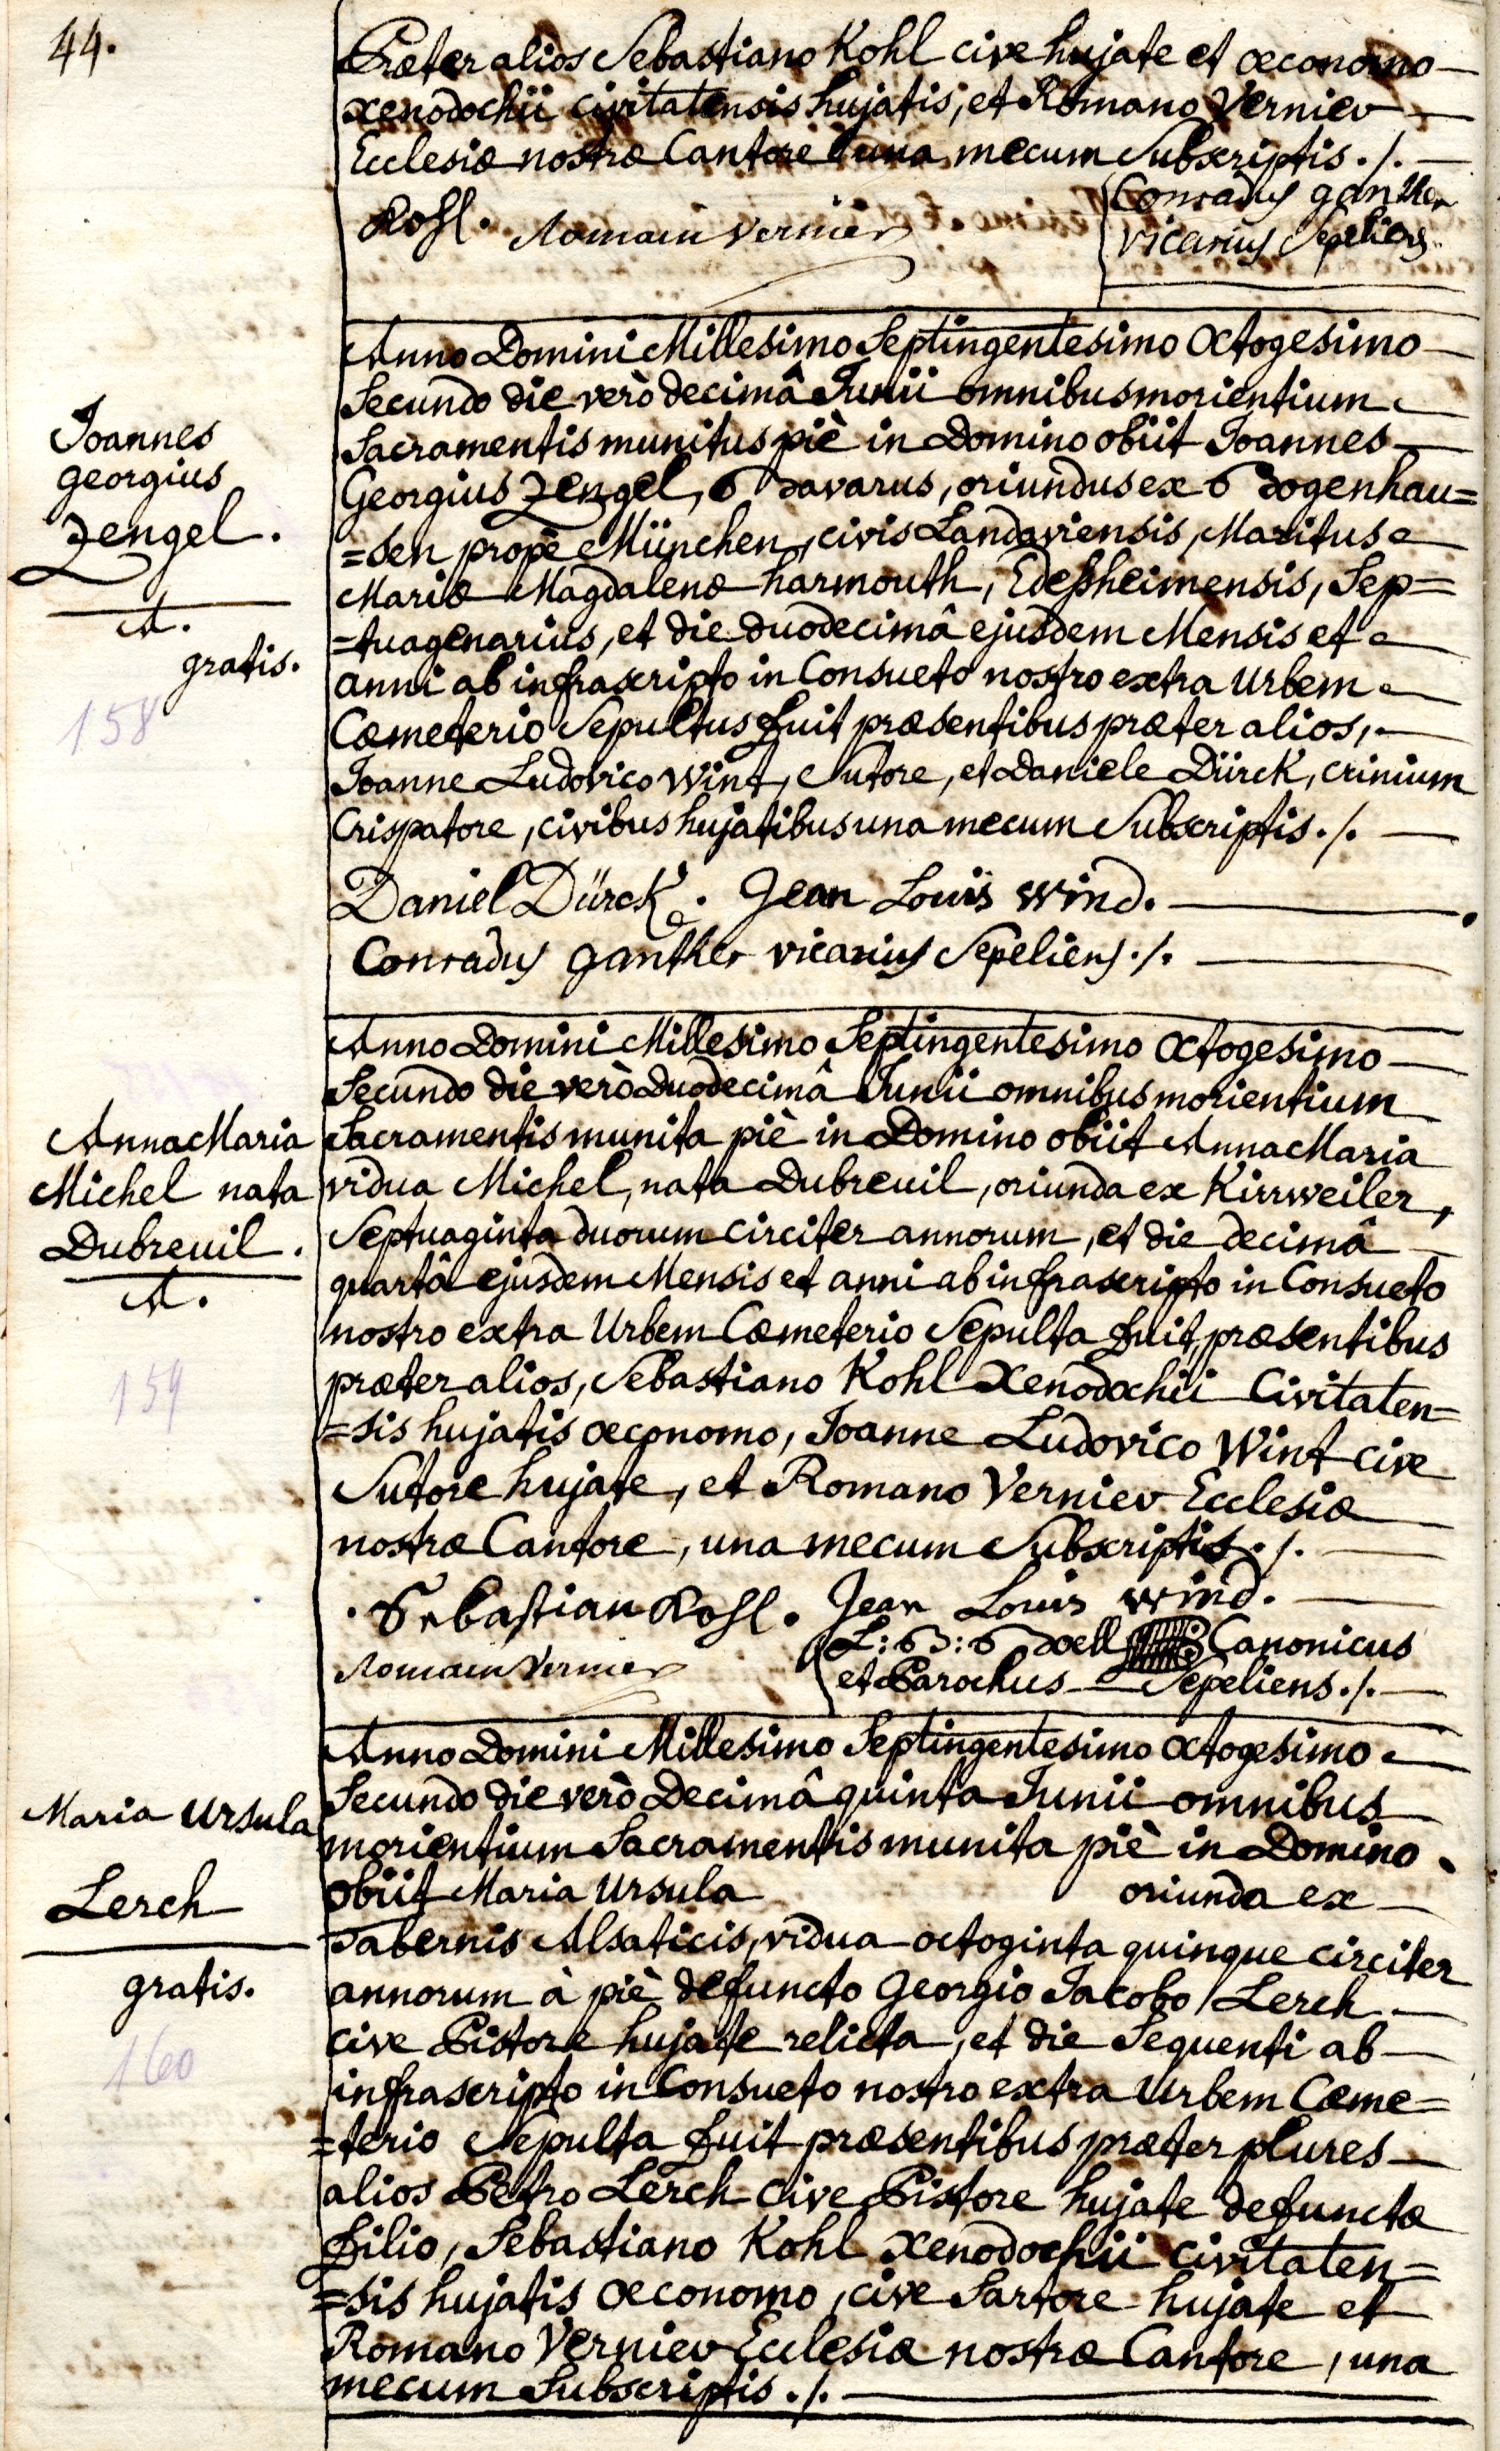 44.
Præter alios Sebastiano Kohl cive hujate et œconomo
xenodochii civitatensis hujatis, et Romano Vernier
Ecclesiæ nostræ Cantore una mecum Subscriptis ./.
Kohl. Romain Vernier
Conradus ganther
vicarius Sepeliens
Joannes
georgius
Zengel.
A.
gratis.
158
Anno Domini Millesimo Septingentesimo Octogesimo
Secundo die verò decimâ Junii omnibus morientium
Sacramentis munitus piè in Domino obiit Joannes
Georgius Zengel, Bavarus, oriundus ex Bogenhau=
=sen propè München, civis Landaviensis, Maritus
Mariæ Magdalenæ harmouth, Edessheimensis, Sep=
=tuagenarius, et die duodecimâ ejusdem Mensis et
anni ab infrascripto in Consueto nostro extra Urbem
Cœmeterio Sepultus fuit præsentibus præter alios,
Joanne Ludovico Wint, Sutore, et Daniele Dürck, crinium
Crispatore, civibus hujatibus una mecum Subscriptis ./.
Daniel Dürck. Jean Louis Wind.
Conradus ganther vicarius Sepeliens ./.
Anna Maria
Michel nata
Dubreuil.
A.
159
Anno Domini Millesimo Septingentesimo Octogesimo
Secundo die verò Duodecimâ Junii omnibus morientium
Sacramentis munita piè in Domino obiit Anna Maria
vidua Michel, nata Dubreuil, oriunda ex Kirrweiler,
Septuaginta duorum circiter annorum, et die decimâ
quartâ ejusdem Mensis et anni ab infrascripto in Consueto
nostro extra Urbem Cœmeterio Sepulta fuit, præsentibus
præter alios, Sebastiano Kohl Xenodochii Civitaten=
=sis hujatis œconomo, Joanne Ludovico Wint cive
Sutore hujate, et Romano Vernier Ecclesiæ
nostræ Cantore, una mecum Subscriptis ./.
Sebastian Kohl. Jean Louis Wind.
Romain Vernier
L: B: Boell Canonicus
et Parochus Sepeliens ./.
Maria Ursula
Lerch
gratis.
160
Anno Domini Millesimo Septingentesimo Octogesimo
Secundo die verò Decimâ quinta Junii omnibus
morientium Sacramentis munita piè in Domino
obiit Maria Ursula oriunda ex
Tabernis Alsaticis, vidua octoginta quinque circiter
annorum à piè defuncto Georgio Jacobo Lerch
cive Pistore hujate relicta, et die Sequenti ab
infrascripto in Consueto nostro extra Urbem Cœme=
=terio Sepulta fuit præsentibus præter plures
alios Petro Lerch cive Pistore hujate defunctæ
filio, Sebastiano Kohl Xenodochii civitaten=
=sis hujatis œconomo, cive Sartore hujate et
Romano Vernier Ecclesiæ nostræ Cantore, una
mecum Subscriptis ./.